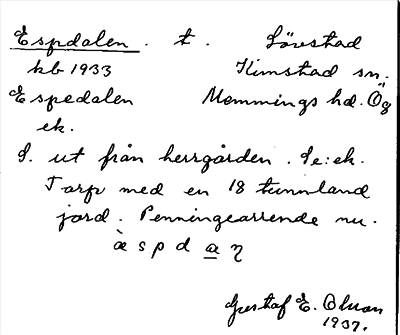 Espdalen . t . Lövestad
kb 1933 Kimstad sn.
Espedalen Memmings hd. Ög
ek.
S. ut från herrgården. Se: ek.
Torp med en 18 tunnland
jord. Penningearrende nu.
à s p d a η
Gustaf E. Olsson
1937.